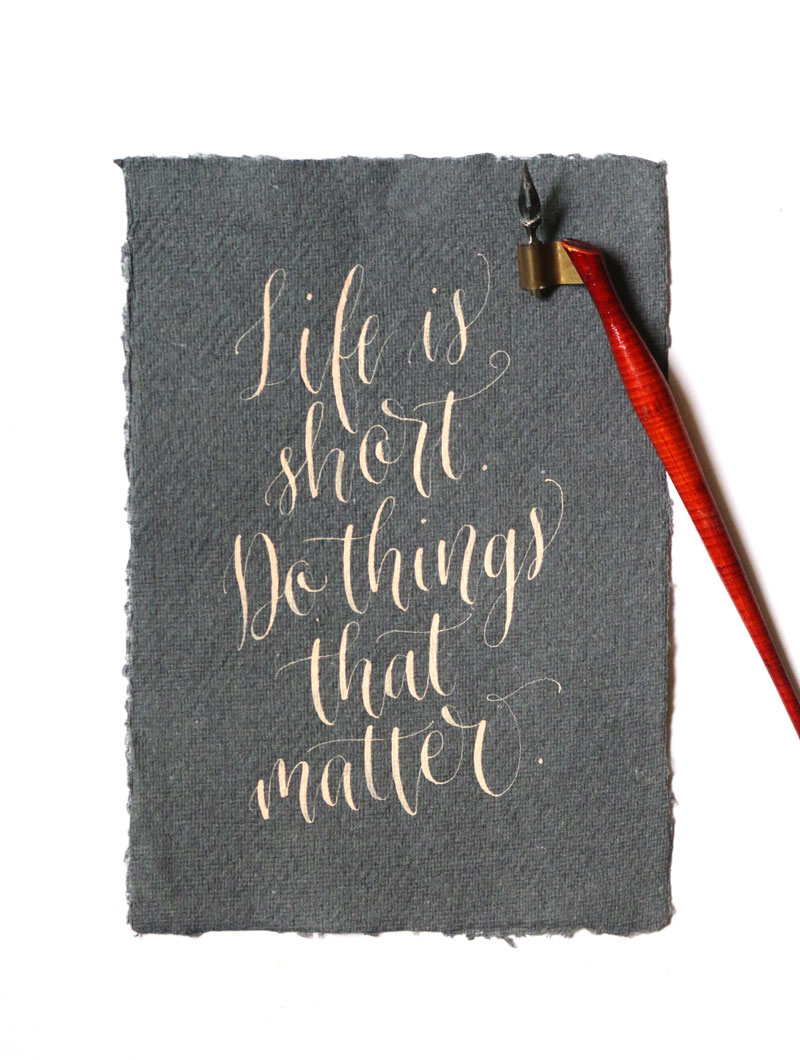 Life is
short.
Do things
that
matter.